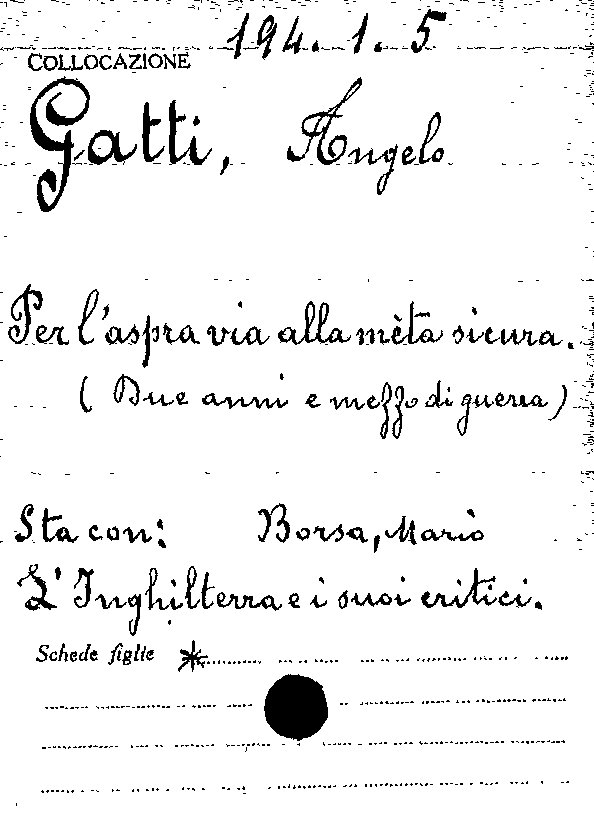 194. 1. 5
COLLOCAZIONE
Gatti, Angelo
Per l'aspra via alla mèta sicura.
( Due anni e mezzo di guerra )
Sta con: Borsa, Mario
L'Inghilterra e i suoi critici.
Schede figlie *